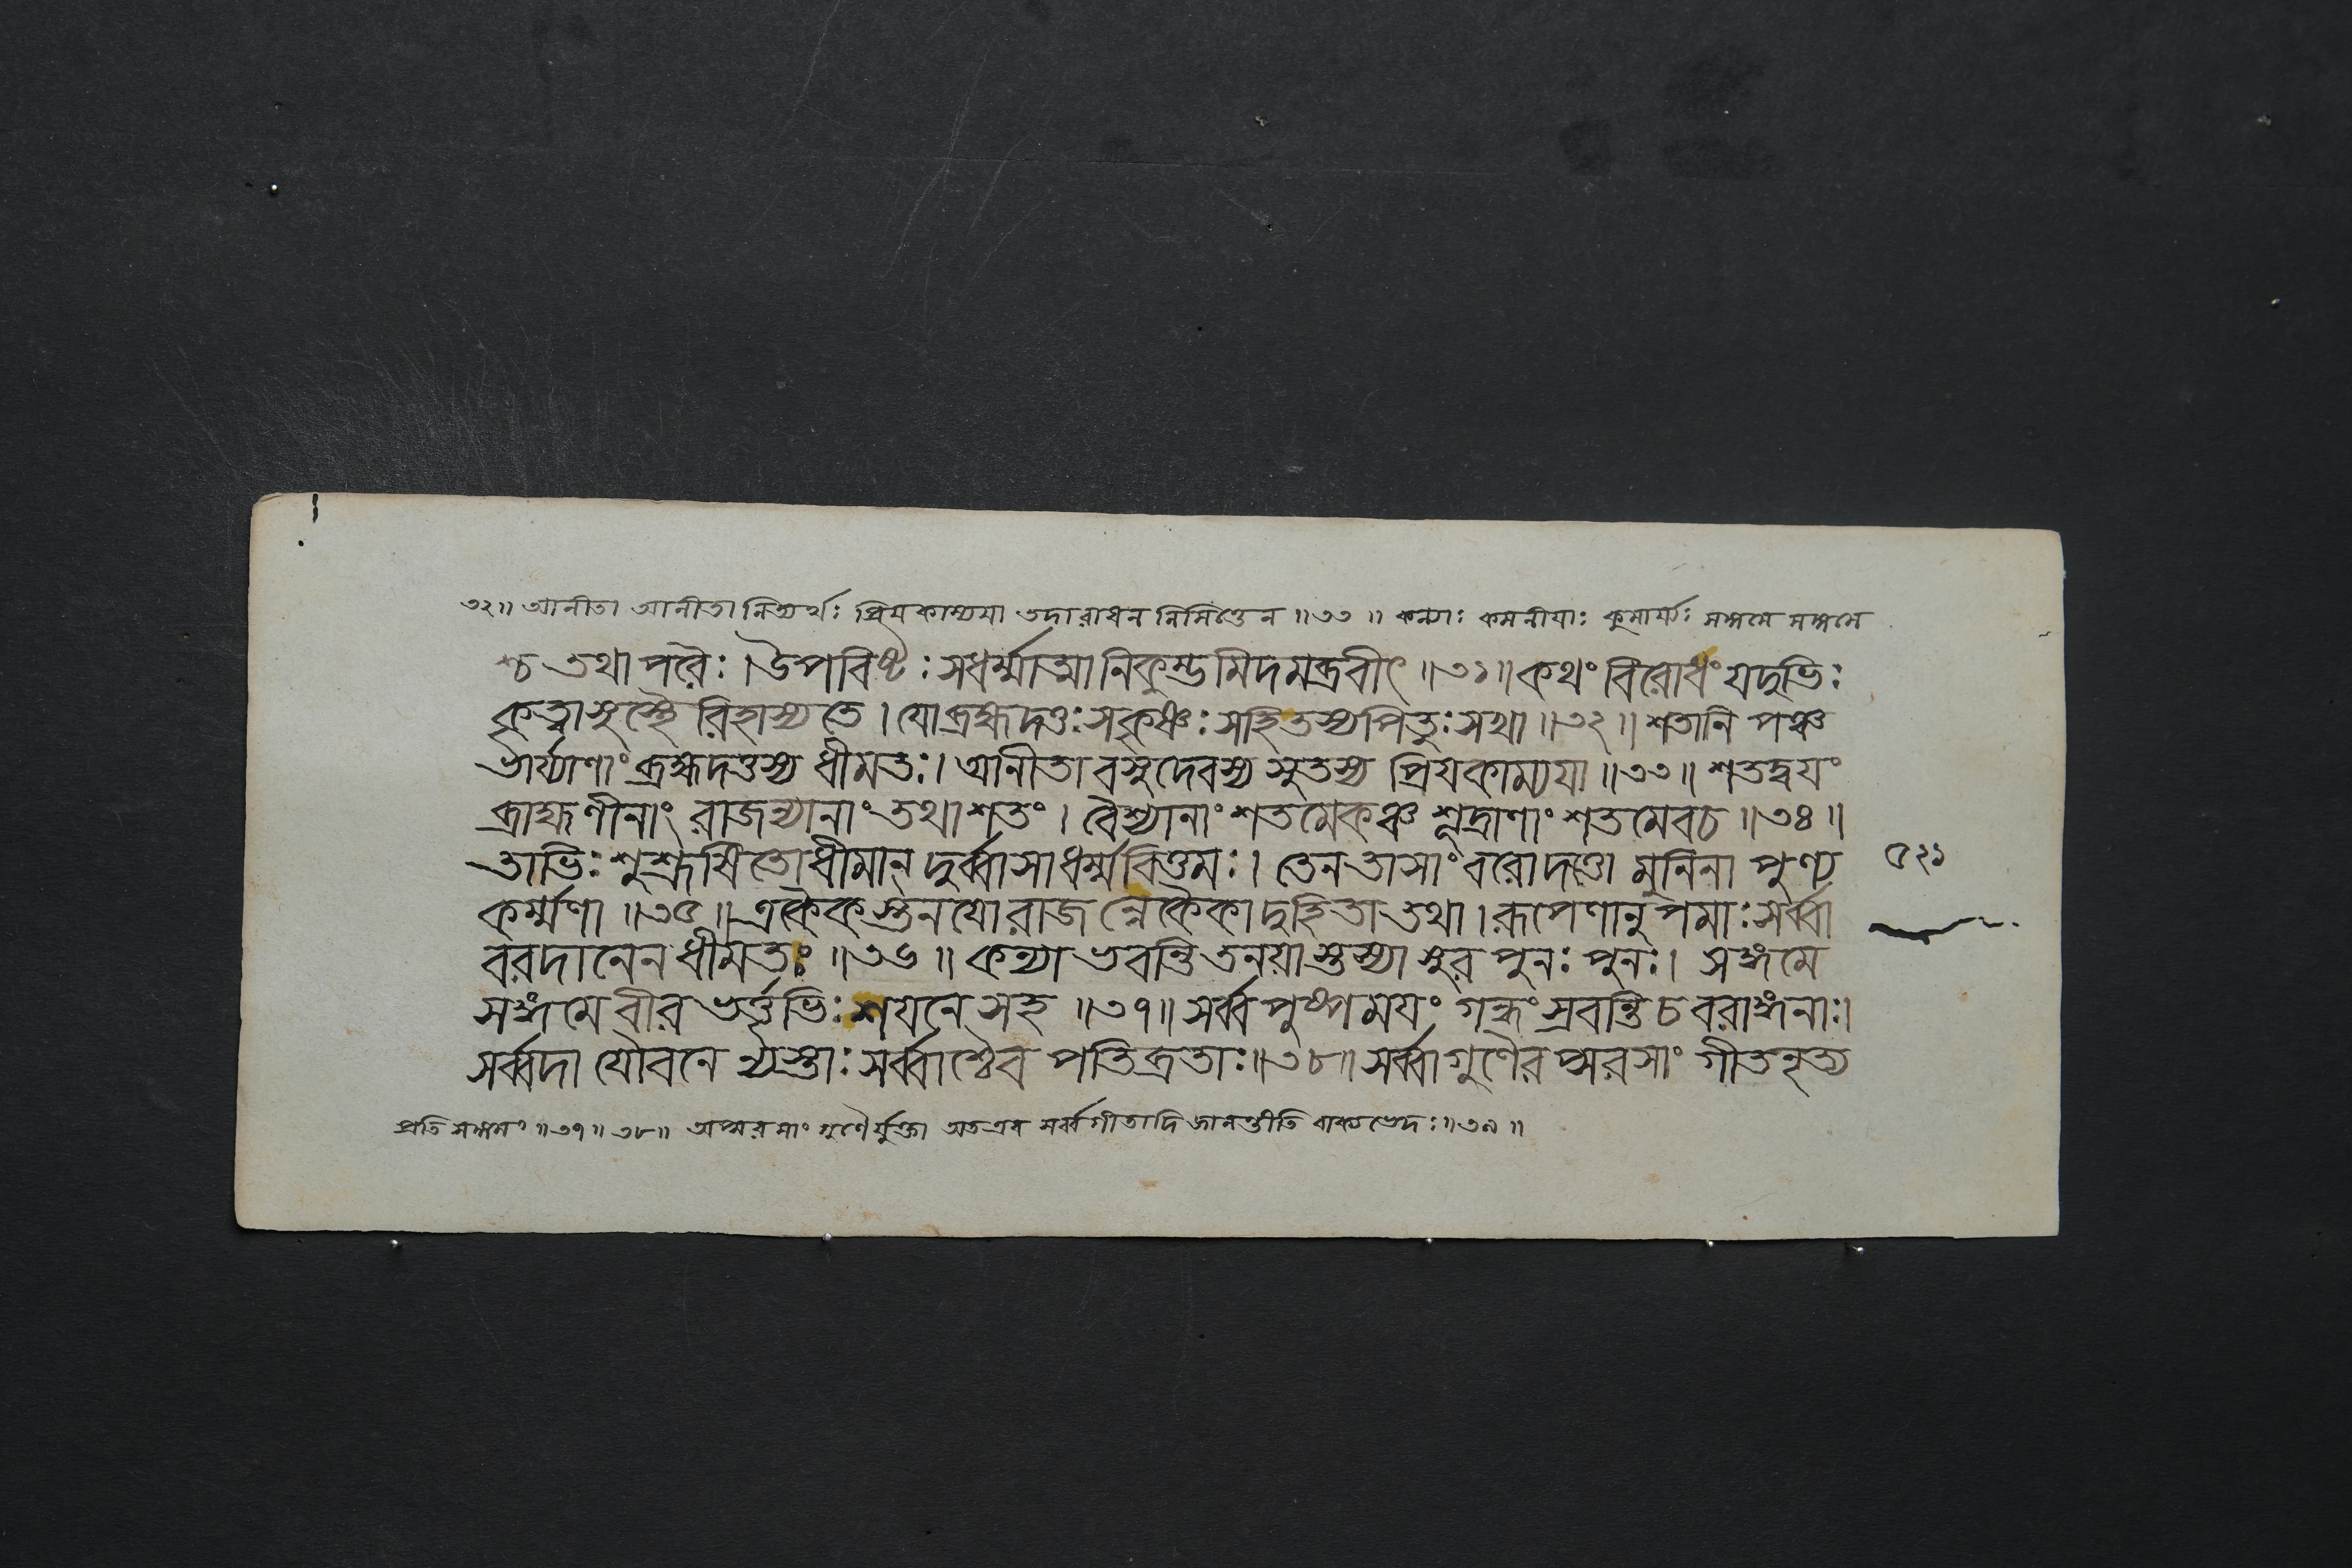 ৩২॥ আনীতা আনীতানিত্যর্থঃ প্রিয়কাম্যয়া তদারাধন নিমিত্তেন ॥৩৩॥ কন্যাঃ কমনীয়াঃ কুমার্য্যঃ সঙ্গমে সঙ্গমে
শ্চ তথাপরৈঃ। উপবিষ্টঃ সধর্ম্মাত্মা নিকুম্ভমিদমব্রবীৎ ॥৩১॥ কথং বিরোধং যদুভিঃ
কৃত্বা সুস্থৈরিহাস্যতে। যো ব্রহ্মদত্তঃ সকৃষ্ণঃ সহিতস্য পিতুঃ সখা ॥৩২॥ শতানি পঞ্চ
ভার্য্যাণাং ব্রহ্মদত্তস্য ধীমতঃ। আনীতা বসুদেবস্য সুতস্য প্রিয়কাম্যয়া ॥৩৩॥ শতদ্বয়ং
ব্রাহ্মণীনাং রাজন্যানাং তথা শতং। বৈশ্যানাং শতমেকঞ্চ শূদ্রাণাং শতমেবচ ॥৩৪॥
তাভিঃ শুশ্রূষিতো ধীমান্ দুর্ব্বাসা ধর্ম্মবিত্তমঃ। তেন তাসাং বরোদত্তো মুনিনা পুণ্য
৫২১
কর্ম্মণা ॥৩৫॥ একৈকস্তনয়ো রাজন্নেকৈকা দুহিতা তথা। রূপেণানুপমাঃ সর্ব্বা
বরদানেন ধীমতঃ ॥৩৬॥ কন্যা ভবন্তি তনয়াস্তস্যাসুর পুনঃ পুনঃ। সঙ্গমে
সঙ্গমে বীর ভর্ত্তৃভিঃ শয়নে সহ ॥৩৭॥ সর্ব্বপুষ্পময়ং গন্ধং স্রবন্তি চ বরাঙ্গনাঃ।
সর্ব্বদা যৌবনে ন্যস্তাঃ সর্ব্বাশ্চৈব পতিব্রতাঃ॥৩৮॥ সর্ব্বা গুণৈরপ্সরসাং গীতনৃত্য
প্রতি সঙ্গমং ॥৩৭॥৩৮॥ অপ্সরসাং গুণৈর্যুক্তা অতএব সর্ব্বগীতাদি জানন্তীতি বাক্যভেদঃ॥৩৯॥